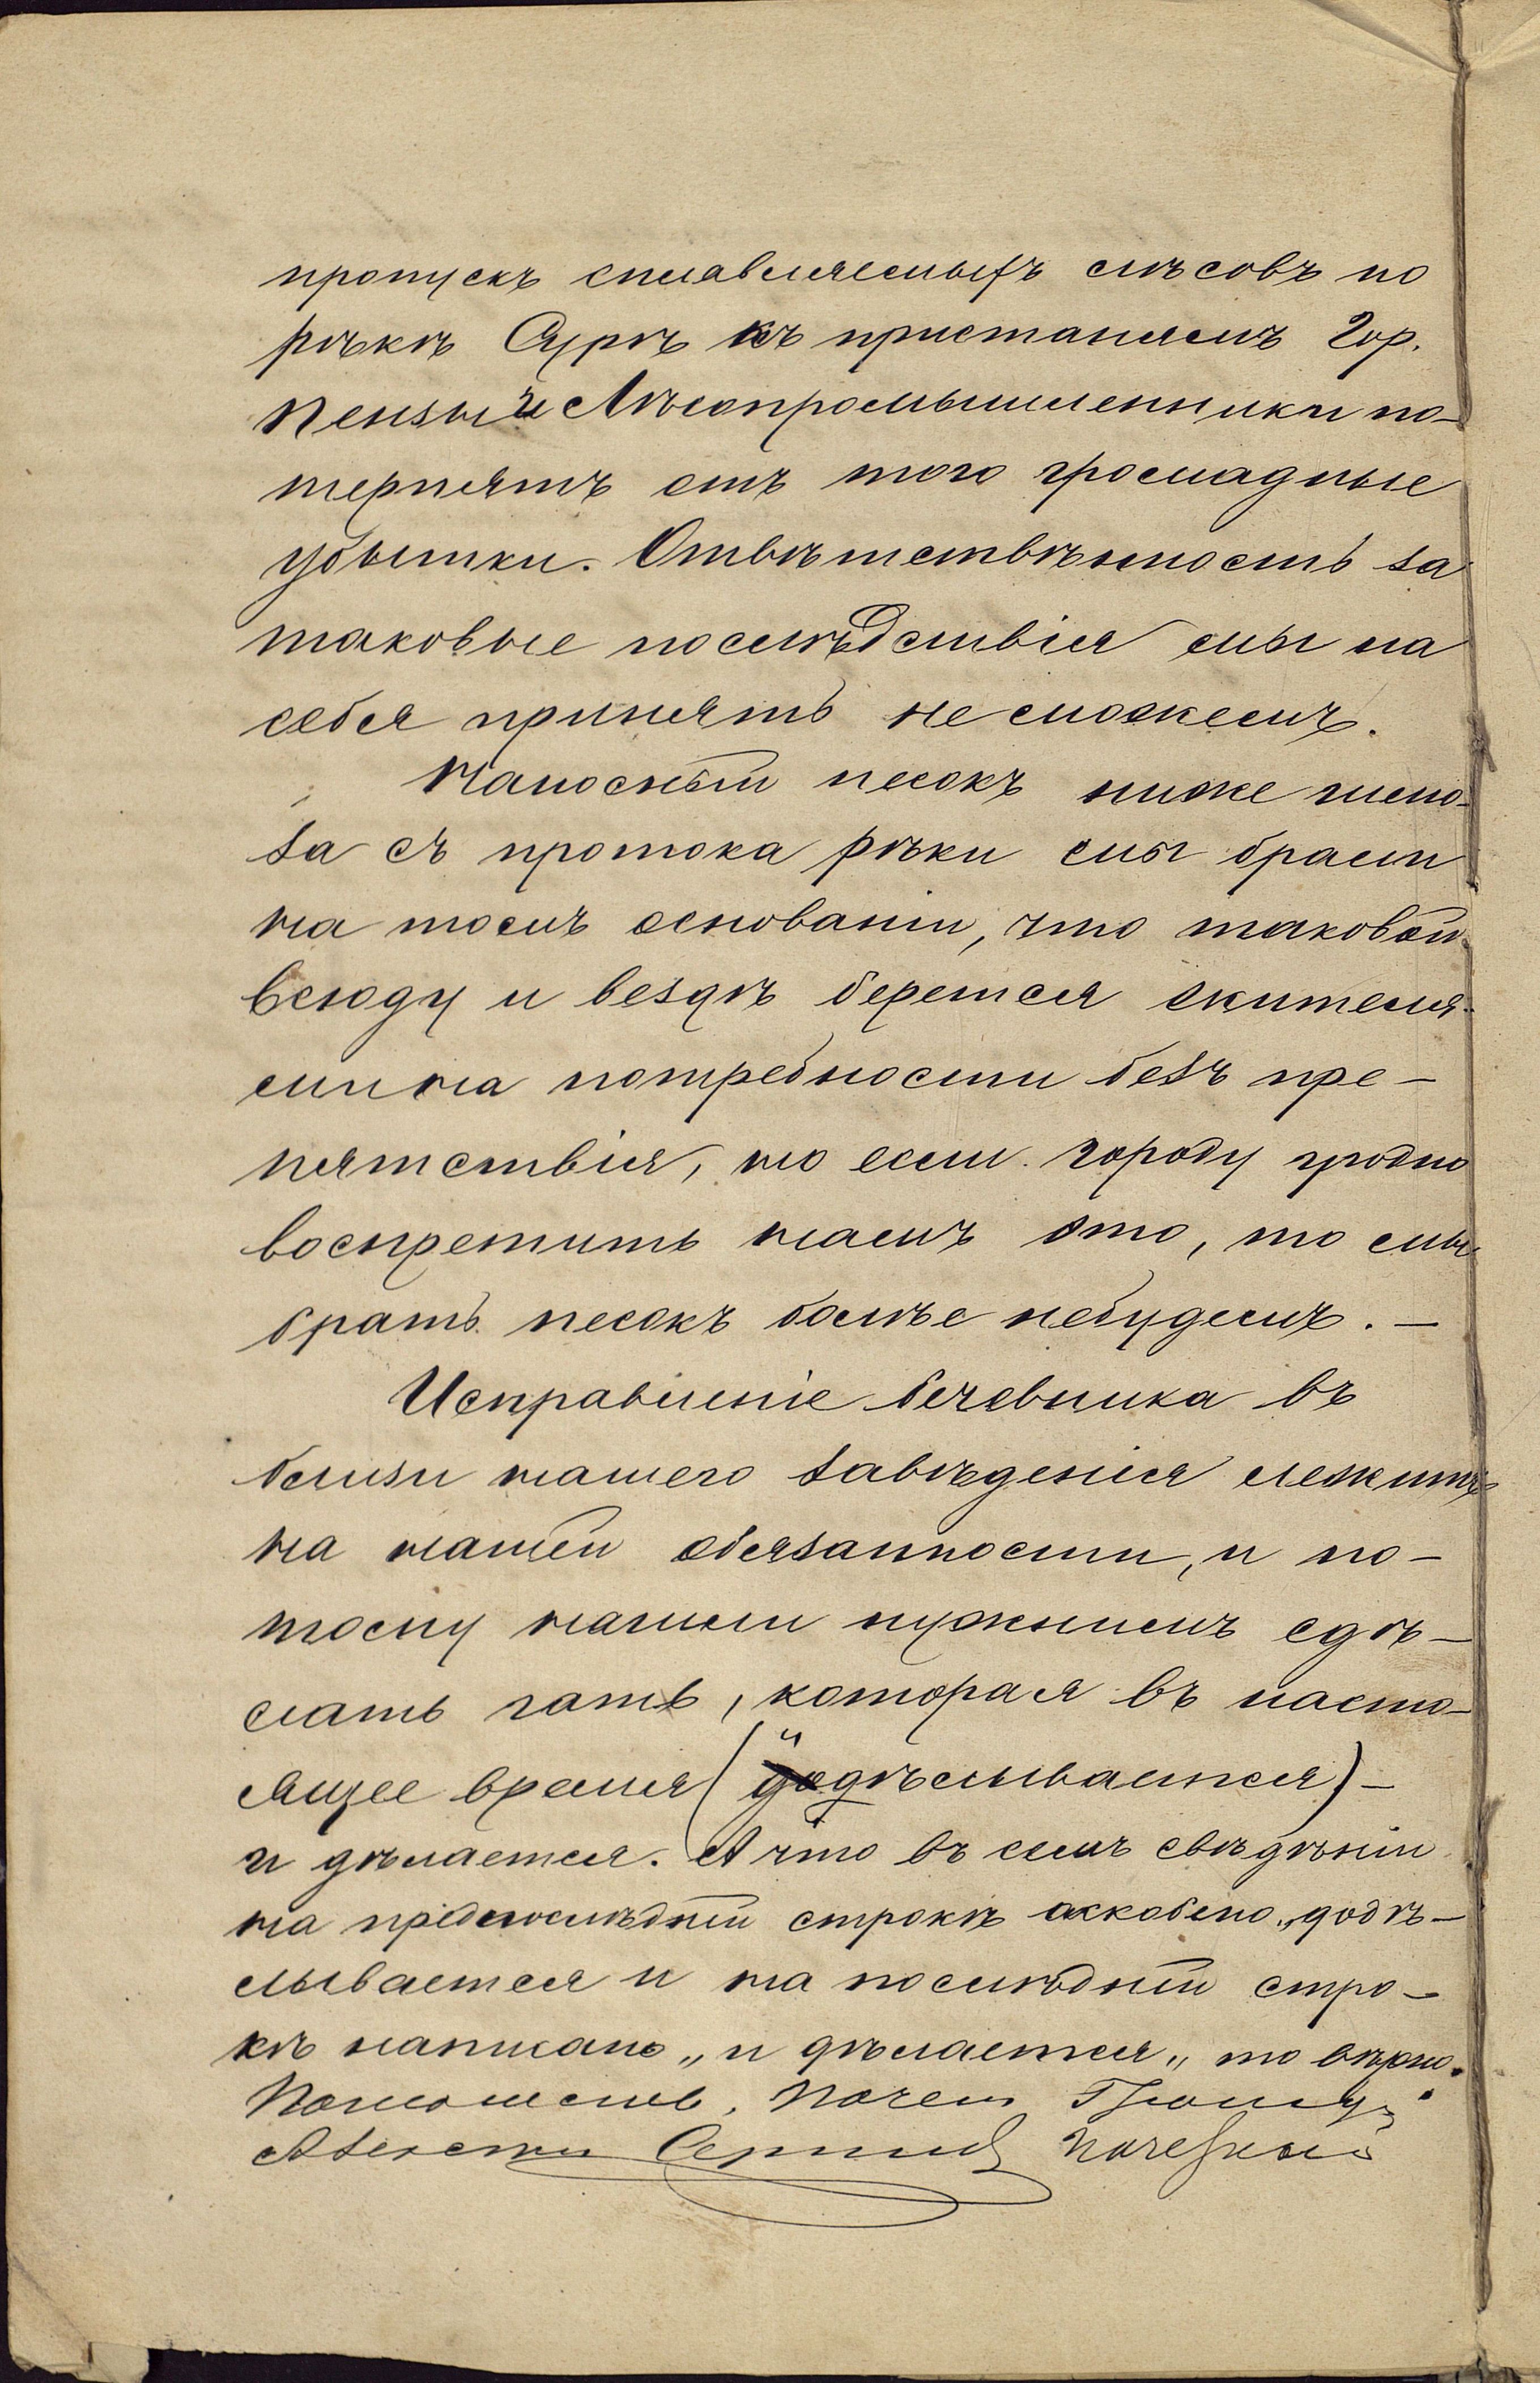 пропускъ сплавляемыхъ лѣсовъ по
рѣкѣ Сурѣ къ пристанямъ Гор.
Пензы и Лѣсопромышленники по-
терпятъ отъ того громадные
убытки. Отвѣтствѣнность за
таковые послѣдствія мы на
себя принять не можемъ.
Наносный песокъ ниже шлю-
за съ протока рѣки мы брали
на томъ основаніи, что таковой
всюду и вездѣ берется жителя-
ми на потребности безъ пре-
пятствія, но если городу угодно
воспретить намъ это, то мы
брать песокъ болѣе небудемъ. —
Исправленіе бечевника въ
близи нашего завѣденія лежитъ
на нашей обязанности, и по-
тому нашли нужнымъ сдѣ-
лать гать, которая въ насто-
ящее время (додѣлывается) -
и дѣлается. А что въ семъ свѣдѣніи
на предпослѣдней строкѣ оскоблено „додѣ-
лывается и на послѣдней стро-
кѣ написано „и дѣлается„ то вѣрно.
Потомств. Почет. Гражд.
Сергѣевъ